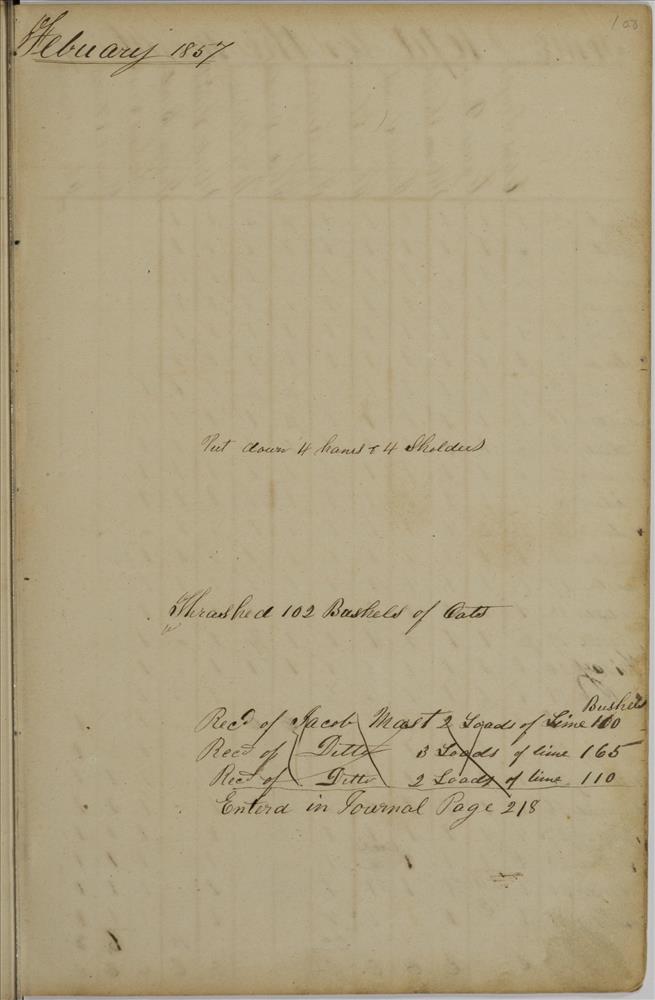 100
Febuary 1857
Put down 4 hams & 4 Sholders
Thrashed 102 Bushels of Oats
Bushels
Recd of Jacob Mast 2 Loads of Lime 110
Recd of Ditto 3 Loads of lime 165
Recd of Ditto 2 Loads of lime 110
Enterd in Journal Page 218